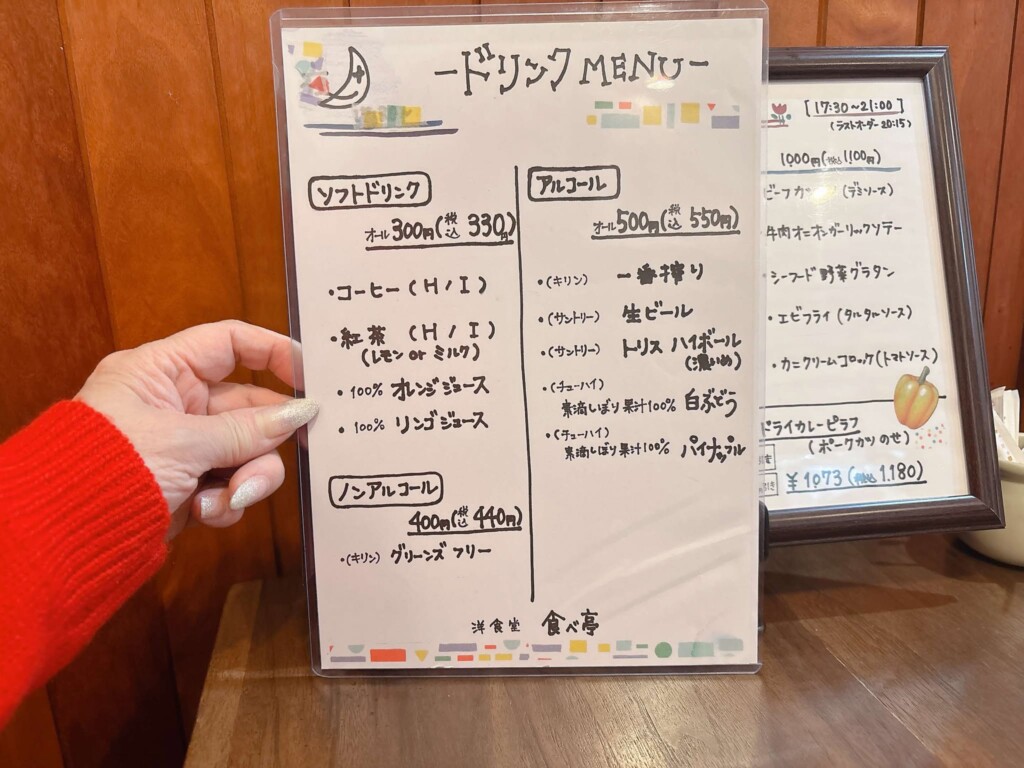 ードリンクMENUー
ソフトドリンク
オール300円(税込 330円)
・コーヒー (H/I)
・紅茶 (H/I)
(レモン or ミルク)
・100% オレンジジュース
・100% リンゴジュース
ノンアルコール
400円(税込 440円)
・(キリン) グリーンズフリー
アルコール
オール500円(税込 550円)
・(キリン) 一番搾り
・(サントリー) 生ビール
・(サントリー) トリス ハイボール
(濃いめ)
・(チューハイ)
素滴しぼり果汁100% 白ぶどう
・(チューハイ)
素滴しぼり果汁100% パイナップル
洋食堂 食べ亭
[17:30~21:00]
(ラストオーダー 20:15)
1000円(税込1,100円)
ビーフカツ (デミソース)
牛肉オニオンガーリックソテー
・シーフード野菜グラタン
・エビフライ (タルタルソース)
・カニクリームコロッケ(トマトソース)
ドライカレーピラフ
(ポークカツのせ)
¥1073(税込1,180)